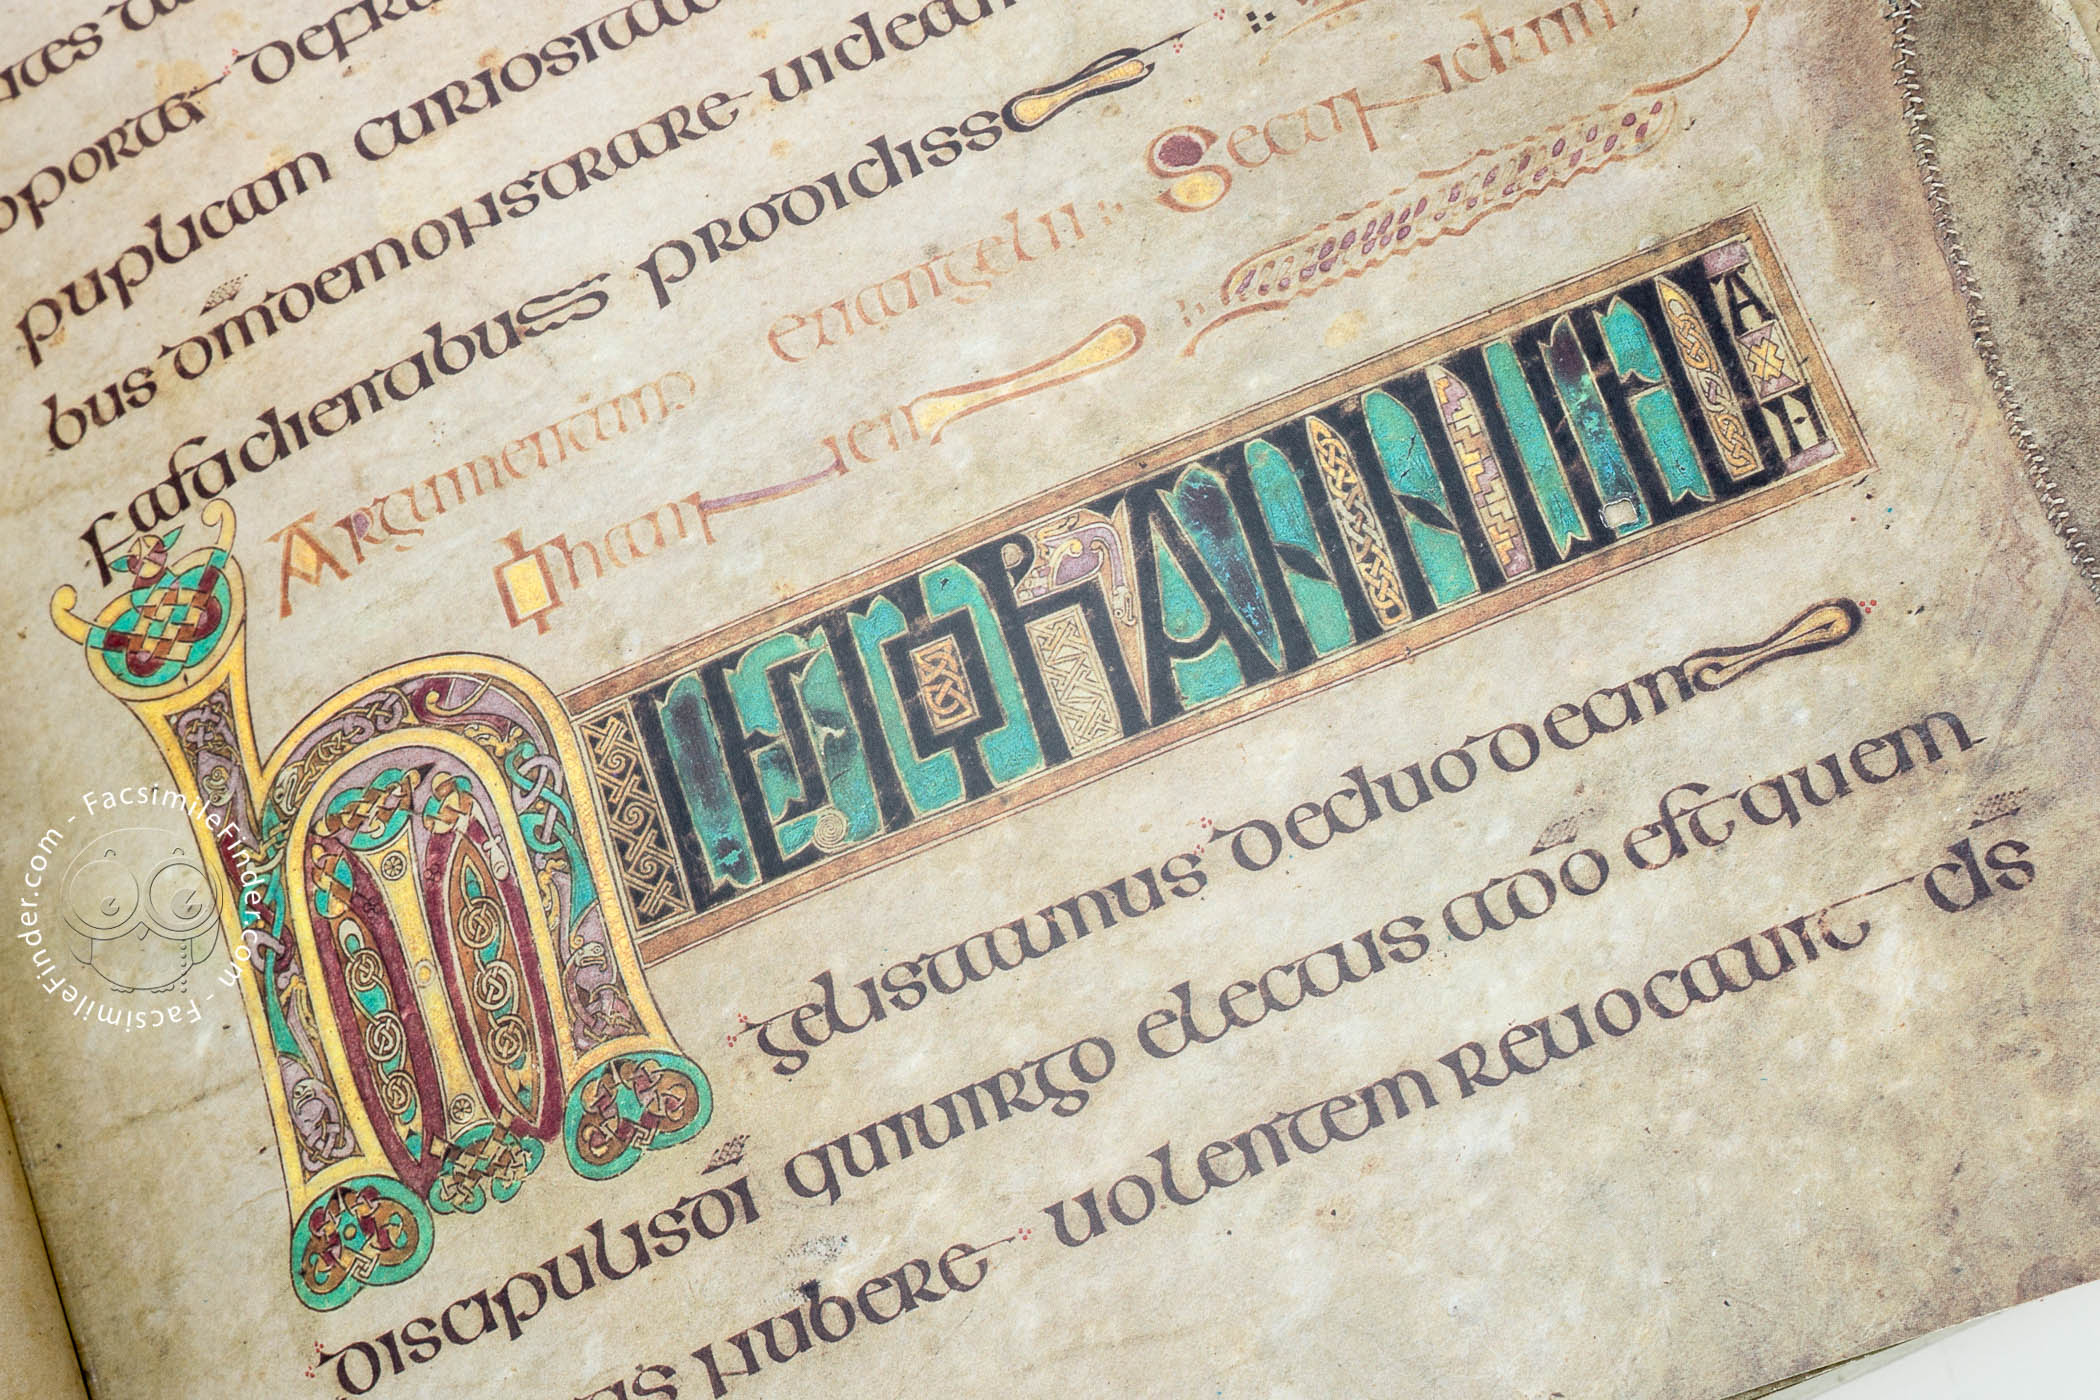 oporta defra
puplicam curiosita
bus dm̅ demonstrare uidean
fastidientabus prodidisse
Argumentum euangelii: Secun dum
Iohannen
HIC EST IOHANNIS EUAN
gelista unus deduodecim
discipulis dī quiuirgo electus adō est quem
nubere uolentem reuocauit ds̄
FacsimileFinder.com - FacsimileFinder.com - FacsimileFinder.com